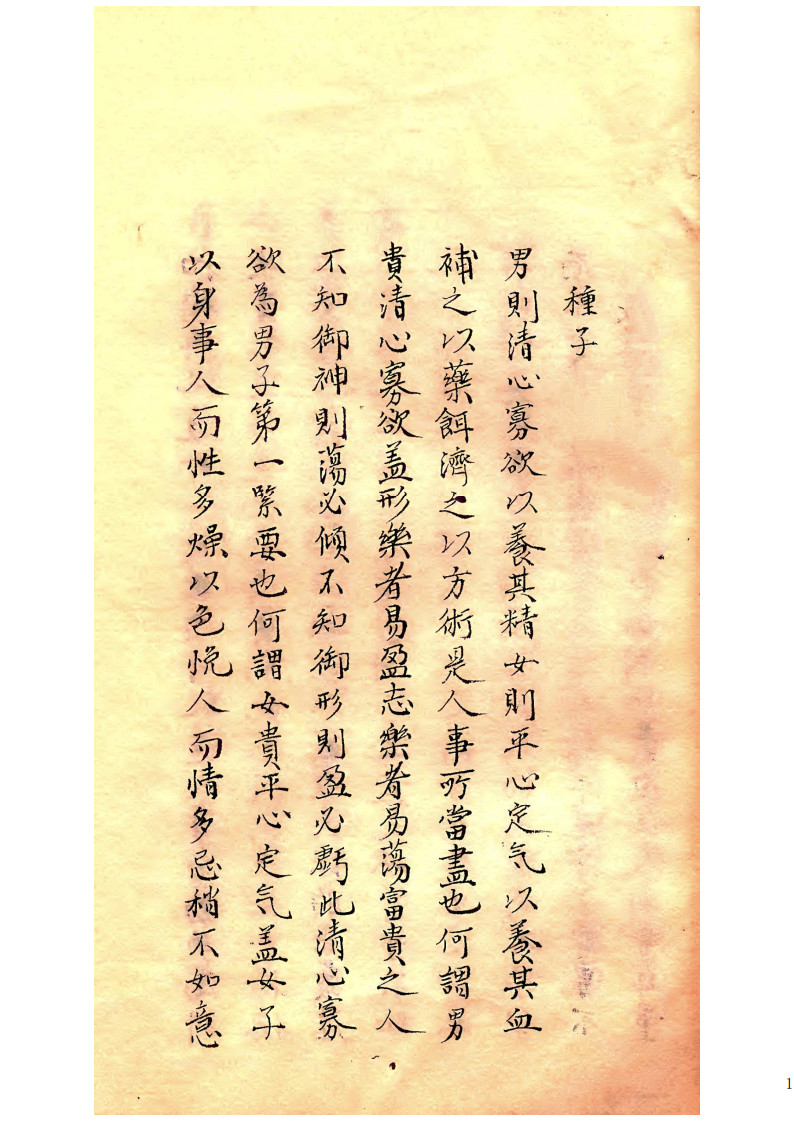 種子
男則清心寡欲以養其精女則平心定气以養其血
補之以藥餌濟之以方術是人事所當盡也何謂男
貴清心寡欲盖形樂者易盈志樂者易蕩富貴之人
不知御神則蕩必傾不知御形則盈必虧此清心寡
欲為男子第一緊要也何謂女貴平心定气盖女子
以身事人而性多燥以色悅人而情多忌稍不如意
1